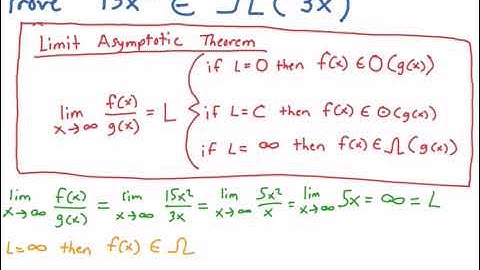 Prove 15x² ∈ Ω(3x)
Limit Asymptotic Theorem
lim x→∞ f(x)/g(x) = L
if L=0 then f(x) ∈ O(g(x))
if L=C then f(x) ∈ Θ(g(x))
if L= ∞ then f(x) ∈ Ω(g(x))
lim x→∞ f(x)/g(x) = lim x→∞ 15x²/3x = lim x→∞ 5x²/x = lim x→∞ 5x = ∞ = L
L=∞ then f(x) ∈ Ω